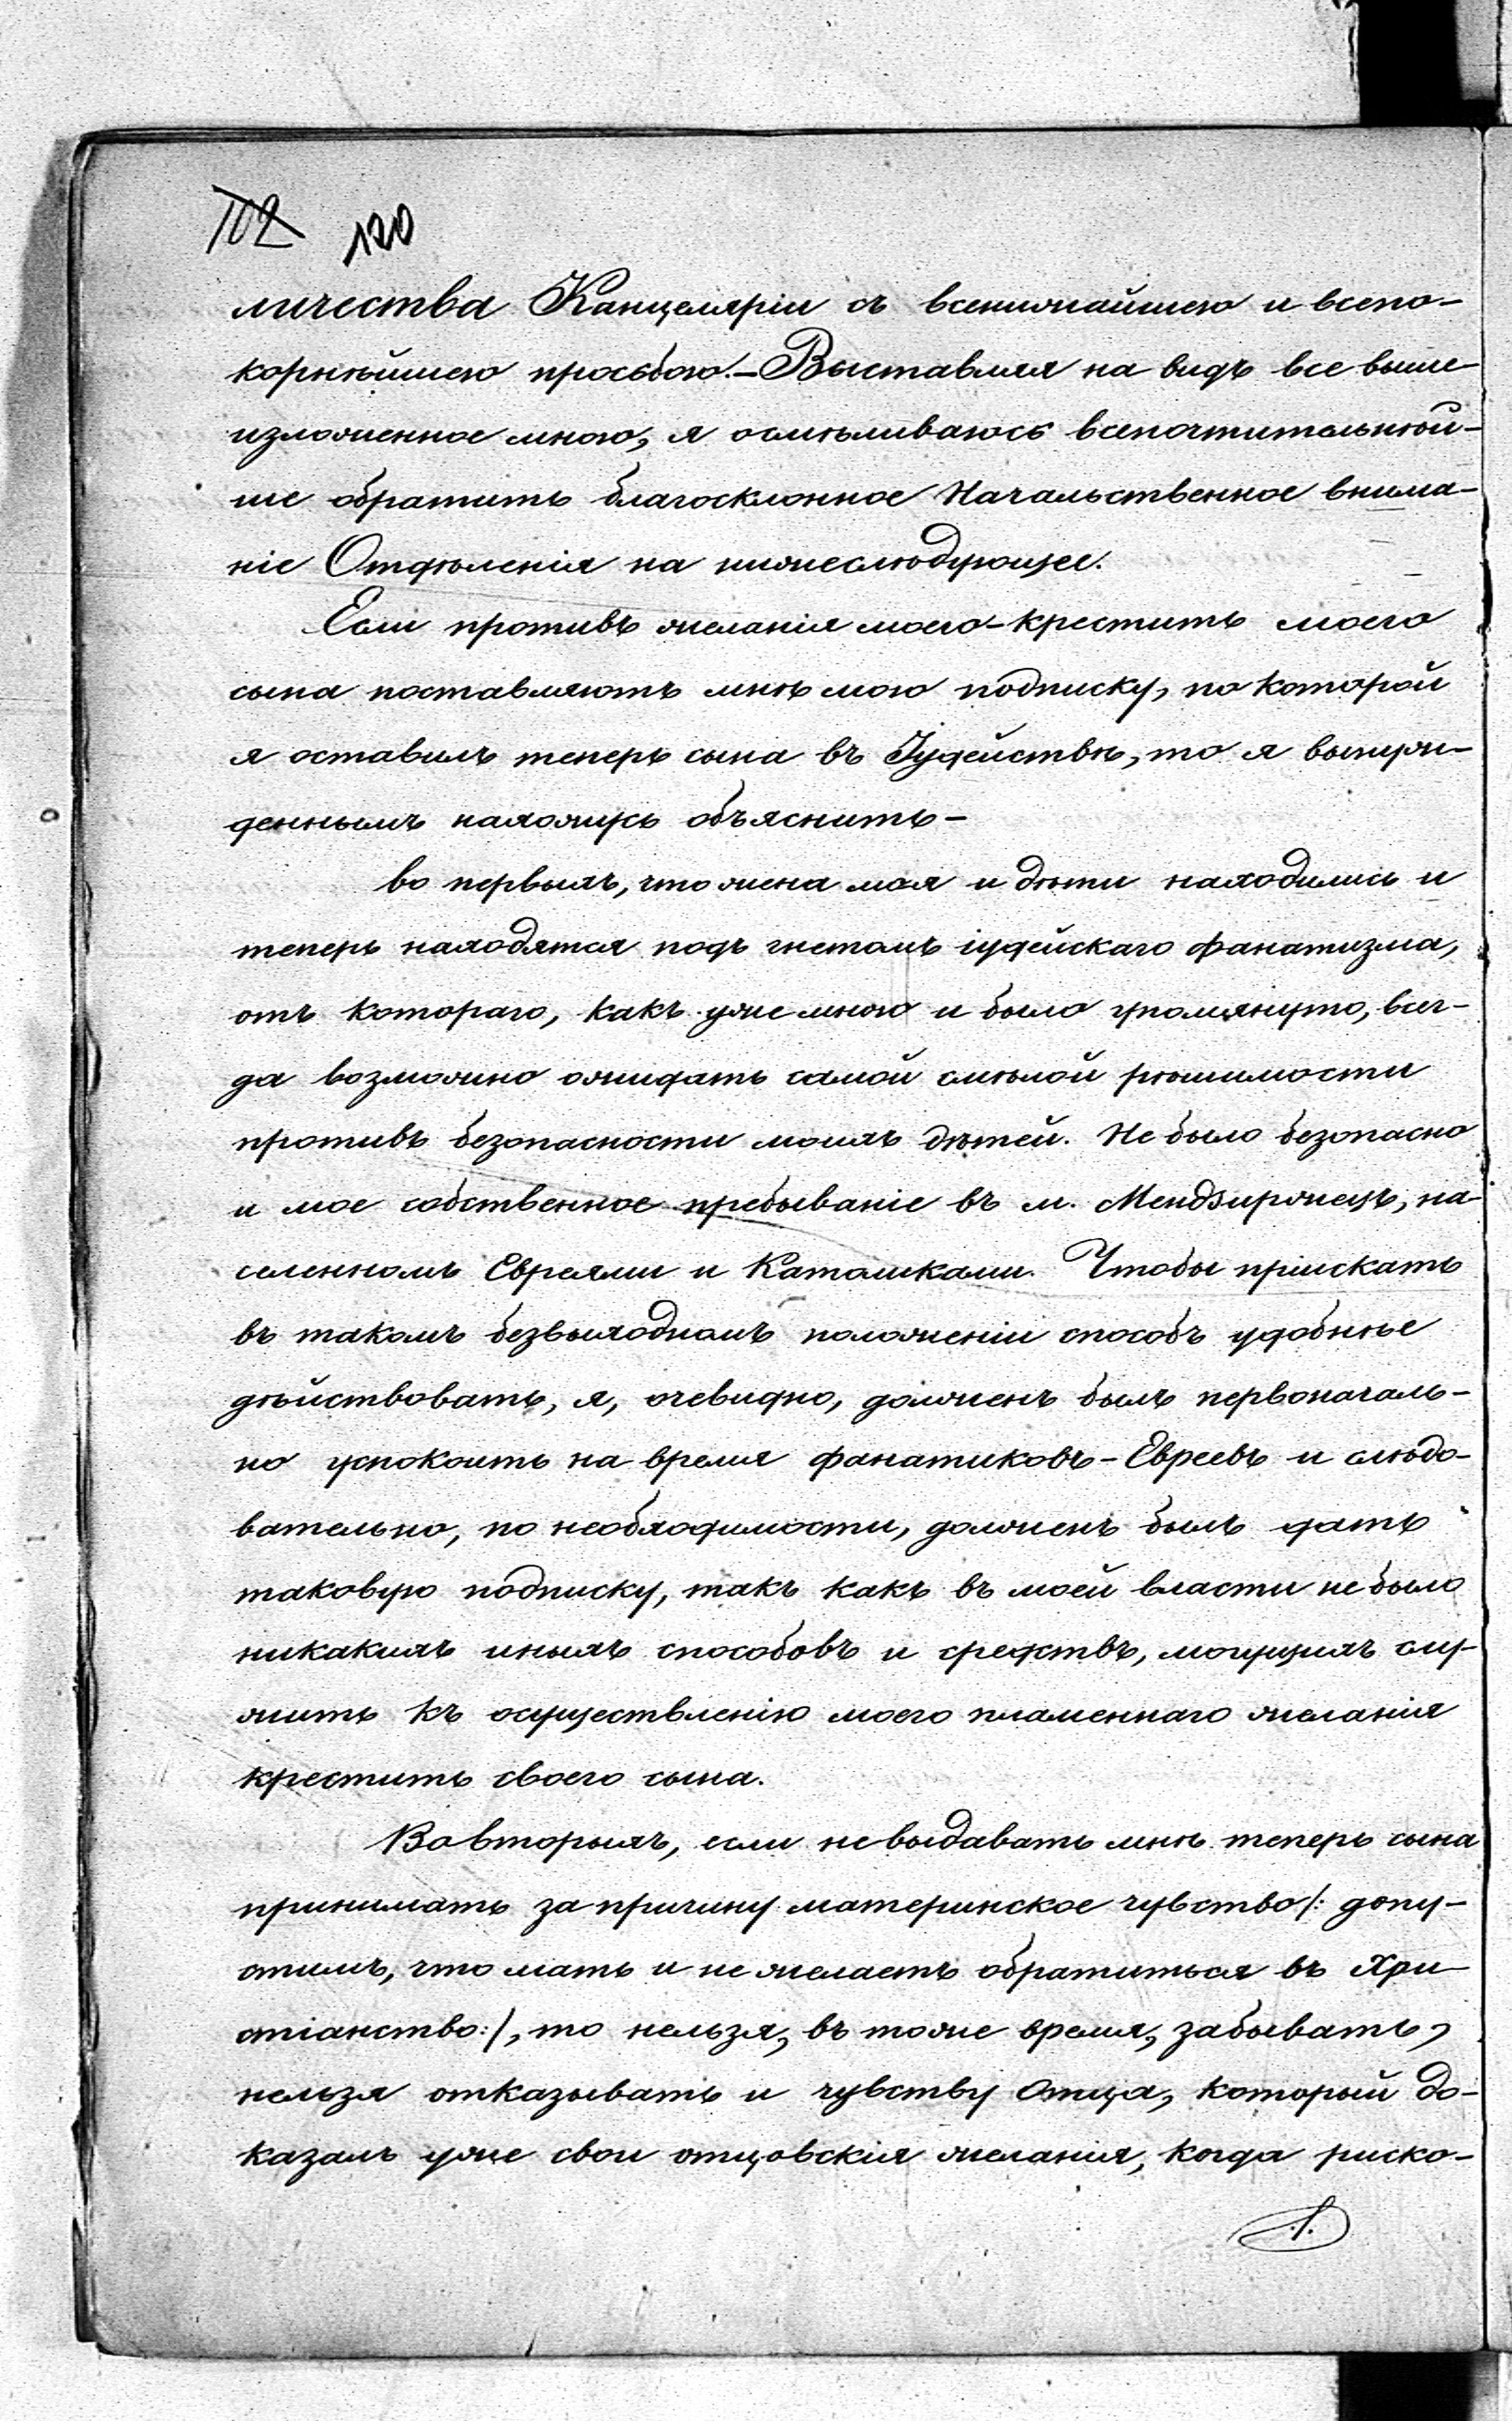 102 120
личества Канцеляріи съ всенижайшею и всепо-
корнѣйшею просьбою.–Выставляя на видъ все выше-
изложенное мною, я осмѣливаюсь всепочтительнѣй-
ше обратить благосклонное Начальственное внима-
ніе Отдѣленія на нижеслѣдующее.
Если противъ желанія моего–крестить моего
сына поставляютъ мнѣ мою подписку, по которой
я оставилъ теперь сына въ Іудействѣ, то я вынуж-
деннымъ нахожусь объяснить–
во первыхъ, что жена моя и дѣти находились и
теперь находятся подъ гнетомъ іудейскаго фанатизма,
отъ котораго, какъ уже мною и было упомянуто, всег-
да возможно ожидать самой смѣлой рѣшимости
противъ безопасности моихъ дѣтей. Не было безопасно
и мое собственное пребываніе въ м. Мендзиржецъ, на-
селенномъ Евреями и Католиками. Чтобы пріискать
въ такомъ безвыходномъ положеніи способъ удобнѣе
дѣйствовать, я, очевидно, долженъ былъ первоначаль-
но успокоить на время фанатиковъ–Евреевъ и слѣдо-
вательно, по необходимости, долженъ былъ дать
таковую подписку, такъ какъ въ моей власти не было
никакихъ иныхъ способовъ и средствъ, могущихъ слу-
жить къ осуществленію моего пламеннаго желанія
крестить своего сына.
Во вторыхъ, если не выдавать мнѣ теперь сына
принимать за причину материнское чувство/: допу-
стимъ, что мать и не желаетъ обратиться въ Хри-
стіанство:/, то нельзя, въ тоже время, забывать,
нельзя отказывать и чувству Отца, который до-
казалъ уже свои отцовскія желанія, когда риско-